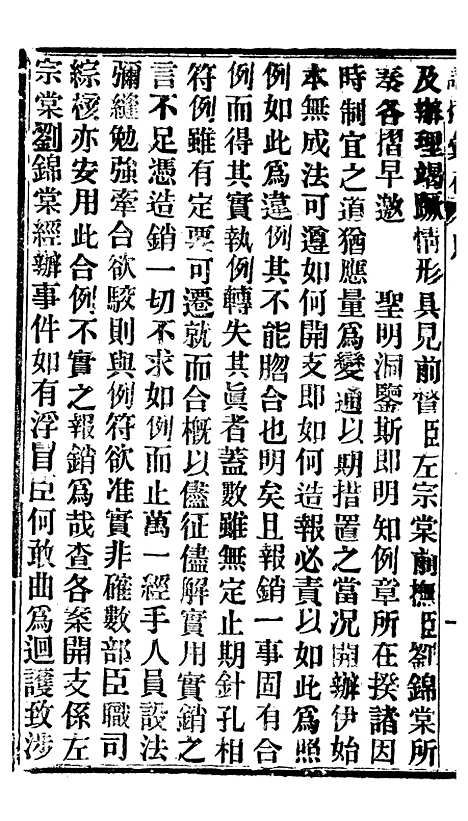 及辦理竭蹶情形具見前督臣左宗棠前撫臣劉錦棠所
奏各摺早邀　　聖明洞鑒斯即明知例章所在揆諸因
時制宜之道猶應量爲變通以期措置之當況開辦伊始
本無成法可遵如何開支即如何造報必責以如此爲照
例如此爲違例其不能脗合也明矣且報銷一事固有合
例而得其實執例轉失其眞者蓋數雖無定止期針孔相
符例雖有定要可遷就而合概以儘征儘解實用實銷之
言不足憑造銷一切不求如例而止萬一經手人員設法
彌縫勉強牽合欲駁則與例符欲准實非確數部臣職司
綜核亦安用此合例不實之報銷爲哉查各案開支係左
宗棠劉錦棠經辦事件如有浮冒臣何敢曲爲迴護致涉